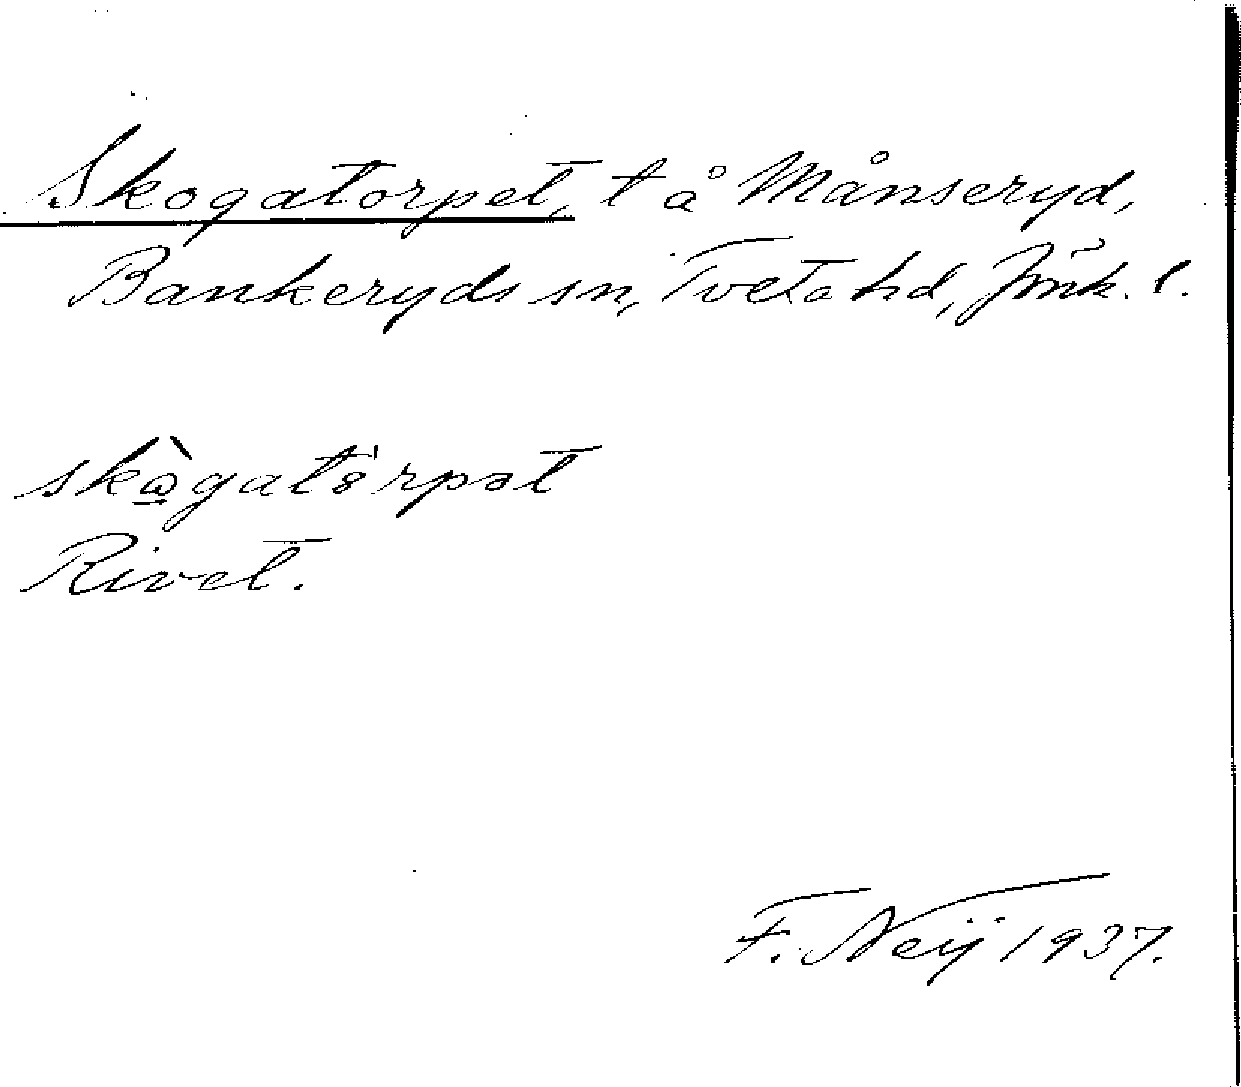 Skogatorpet, t å Månseryd,
Bankeryds sn, Tveta hd, Jönk. l.
skò̱gatö́rpət
Rivet.
F. Neij 1937.